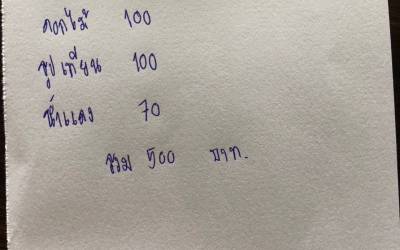 ดอกไม้ 100
ธูปเทียน 100
น้ำแดง 70
รวม 500 บาท.